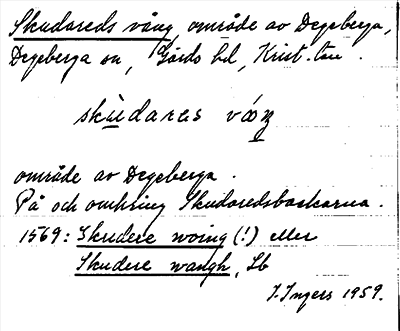 Skudareds vång, område av Degeberga,
Degeberga sn, Gärds hd, Krist. län.
skùdaras vǻŋ
område av Degeberga.
På och omkring Skudaredsbackarna.
1569: Skudere woing (!) eller
Skudere wangh, Lb
I. Ingers 1959.